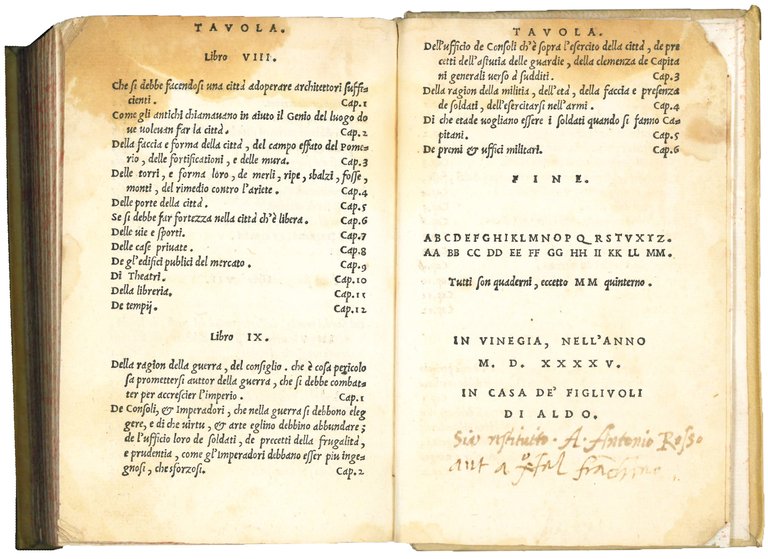 TAVOLA.
Libro VIII.
Che si debbe facendosi una città adoperare architettori suffi
cienti. Cap.1
Come gli antichi chiamauano in aiuto il Genio del luogo do
ue uoleuan far la città. Cap.2
Della faccia e forma della città, del campo effato del Pome
rio, delle fortificationi, e delle mura. Cap.3
Delle torri, e forma loro, de merli, ripe, sbalzi, fosse,
monti, del rimedio contro l'ariete. Cap.4
Delle porte della città. Cap.5
Se si debbe far fortezza nella città ch'è libera. Cap.6
Delle uie e sporti. Cap.7
Delle case priuate. Cap.8
De gl'edifici publici del mercato. Cap.9
Di Theatri. Cap.10
Della libreria. Cap.11
De tempij. Cap.12
Libro IX.
Della ragion della guerra, del consiglio. che è cosa pericolo
sa promettersi auttor della guerra, che si debbe combat
ter per accrescier l'imperio. Cap.1
De Consoli, & Imperadori, che nella guerra si debbono eleg
gere, e di che uirtu, & arte eglino debbino abbundare;
de l'ufficio loro de soldati, de precetti della frugalità,
e prudentia, come gl'Imperadori debbano esser piu inge-
gnosi, che sforzosi. Cap.2
TAVOLA.
Dell'ufficio de Consoli ch'è sopra l'esercito della città, de pre
cetti dell'astutia delle guardie, della clemenza de Capita
ni generali uerso d sudditi. Cap.3
Della ragion della militia, dell'età, della faccia e presenza
de soldati, dell'esercitarsi nell'armi. Cap.4
Di che etade uogliano essere i soldati quando si fanno Ca-
pitani. Cap.5
De premi & uffici militari. Cap.6
FINE.
ABCDEFGHIKLMNOPQRSTVXYZ.
AA BB CC DD EE FF GG HH II KK LL MM.
Tutti son quaderni, eccetto MM quinterno.
IN VINEGIA, NELL'ANNO
M. D. XXXXV.
IN CASA DE' FIGLIVOLI
DI ALDO.
Sia restituito A Antonio Rosso